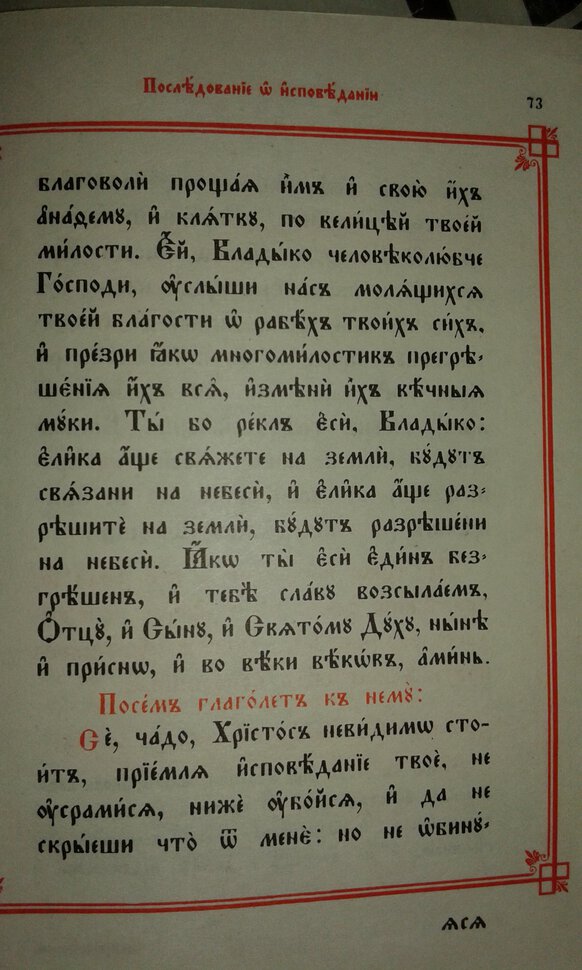 Послѣ́дованїе ѡ҆ и҆сповѣ́данїи
73
благоволѝ проща́ѧ и҆̀мъ и҆ свою̀ и҆́хъ
а҆на́дему, и҆ клѧ́тку, по вели́цѣй твое́й
ми́лости. Є҆́й, Влады́ко человѣколю́бче
Го́споди, ᲂу҆слы́ши на́съ молѧ́щихсѧ
твое́й бла́гости ѡ҆ рабѣ́хъ твои́хъ си́хъ,
и҆ пре́зри ꙗ҆́кѡ многоми́лостикъ прегрѣ-
ше́нїѧ и҆́хъ всѧ̑, и҆змѣнѝ и҆́хъ вѣ́чныѧ
мꙋ́ки. Ты́ бо ре́клъ є҆сѝ, Влады́ко:
є҆ли̑ка а҆́ще свѧ́жете на землѝ, бꙋ́дꙋтъ
свѧ́зани на небесѝ, и҆ є҆ли̑ка а҆́ще раз-
рѣшитѐ на землѝ, бꙋ́дꙋтъ разрѣше́ни
на небесѝ. Ꙗ҆́кѡ ты̀ є҆сѝ є҆ди́нъ без-
грѣ́шенъ, и҆ тебѣ̀ сла́вꙋ возсыла́емъ,
Ѻ҆тцꙋ̀, и҆ Сы́нꙋ, и҆ Свѧто́мꙋ Дꙋ́хꙋ, ны́нѣ
и҆ при́снѡ, и҆ во вѣ́ки вѣкѡ́въ, а҆ми́нь.
Посе́мъ глаго́летъ къ немꙋ̀:
Сѐ, ча́до, Хрїсто́съ неви́димѡ сто-
и́тъ, прїе́млѧ и҆сповѣ́данїе твоѐ, не
ᲂу҆срами́сѧ, нижѐ ᲂу҆бо́йсѧ, и҆ да не
скры́еши что̀ ѿ менѐ: но не ѡ҆бинꙋ́-
ѧсѧ